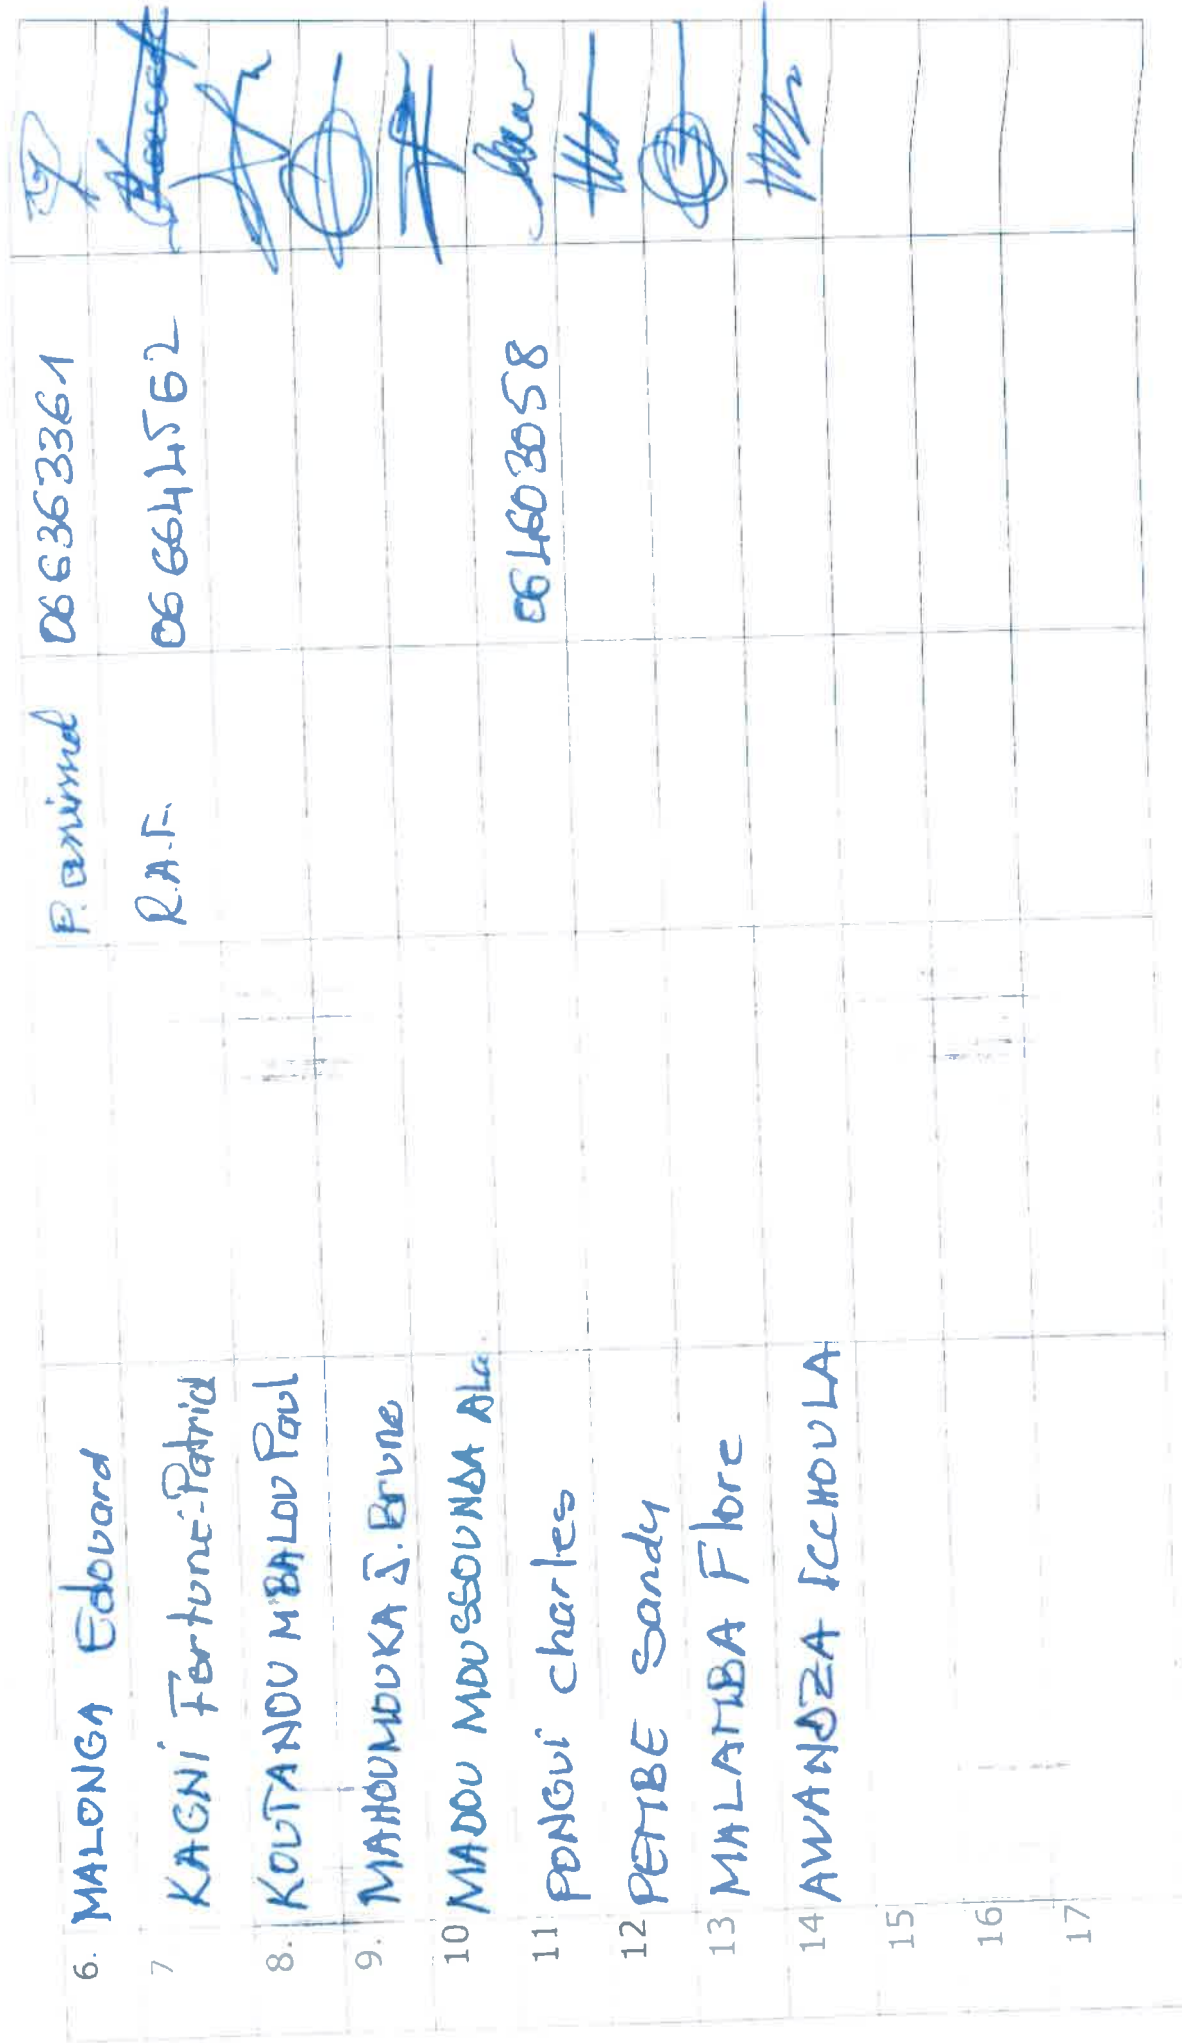 6. MALONGA Edouard P. animal 066363361
7 KAGNI Fortuné-Patrick R.A.F. 066644562
8. KOUTANOU MBALOU Paul
9. MAHOUMOUKA J. Brune
10 MADOU MOUSSOUNDA
11 PONGUI charles 064603058
12 PEMBE Sandy
13 MALAMBA Flore
14 AWANDZA ICCHOULA
15
16
17